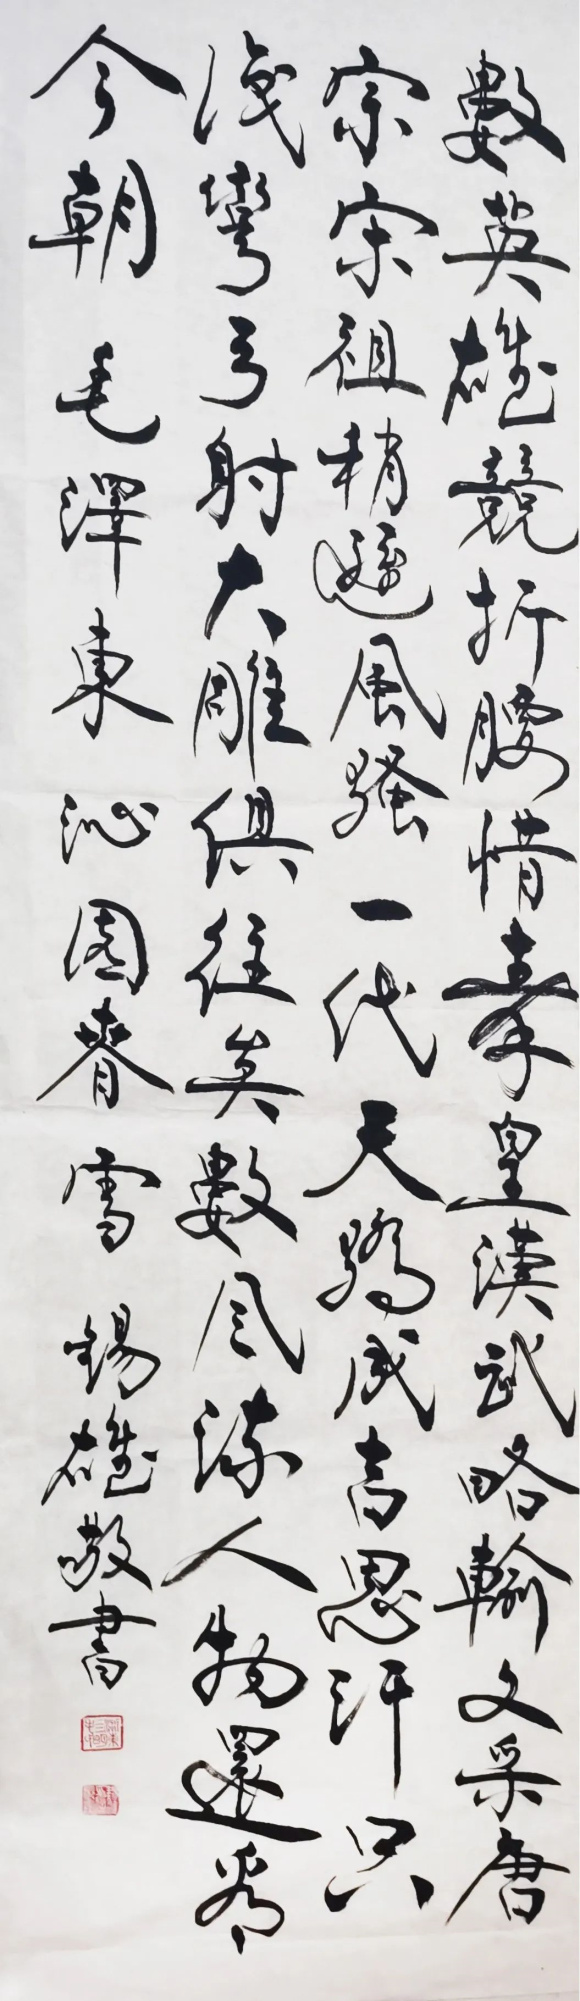 數英雄競折腰惜秦皇漢武略輸文采唐
宗宋祖稍遜風騷一代天驕成吉思汗只
識彎弓射大雕俱往矣數风流人物還看
今朝 毛澤東 沁園春 雪 錫雄敬書